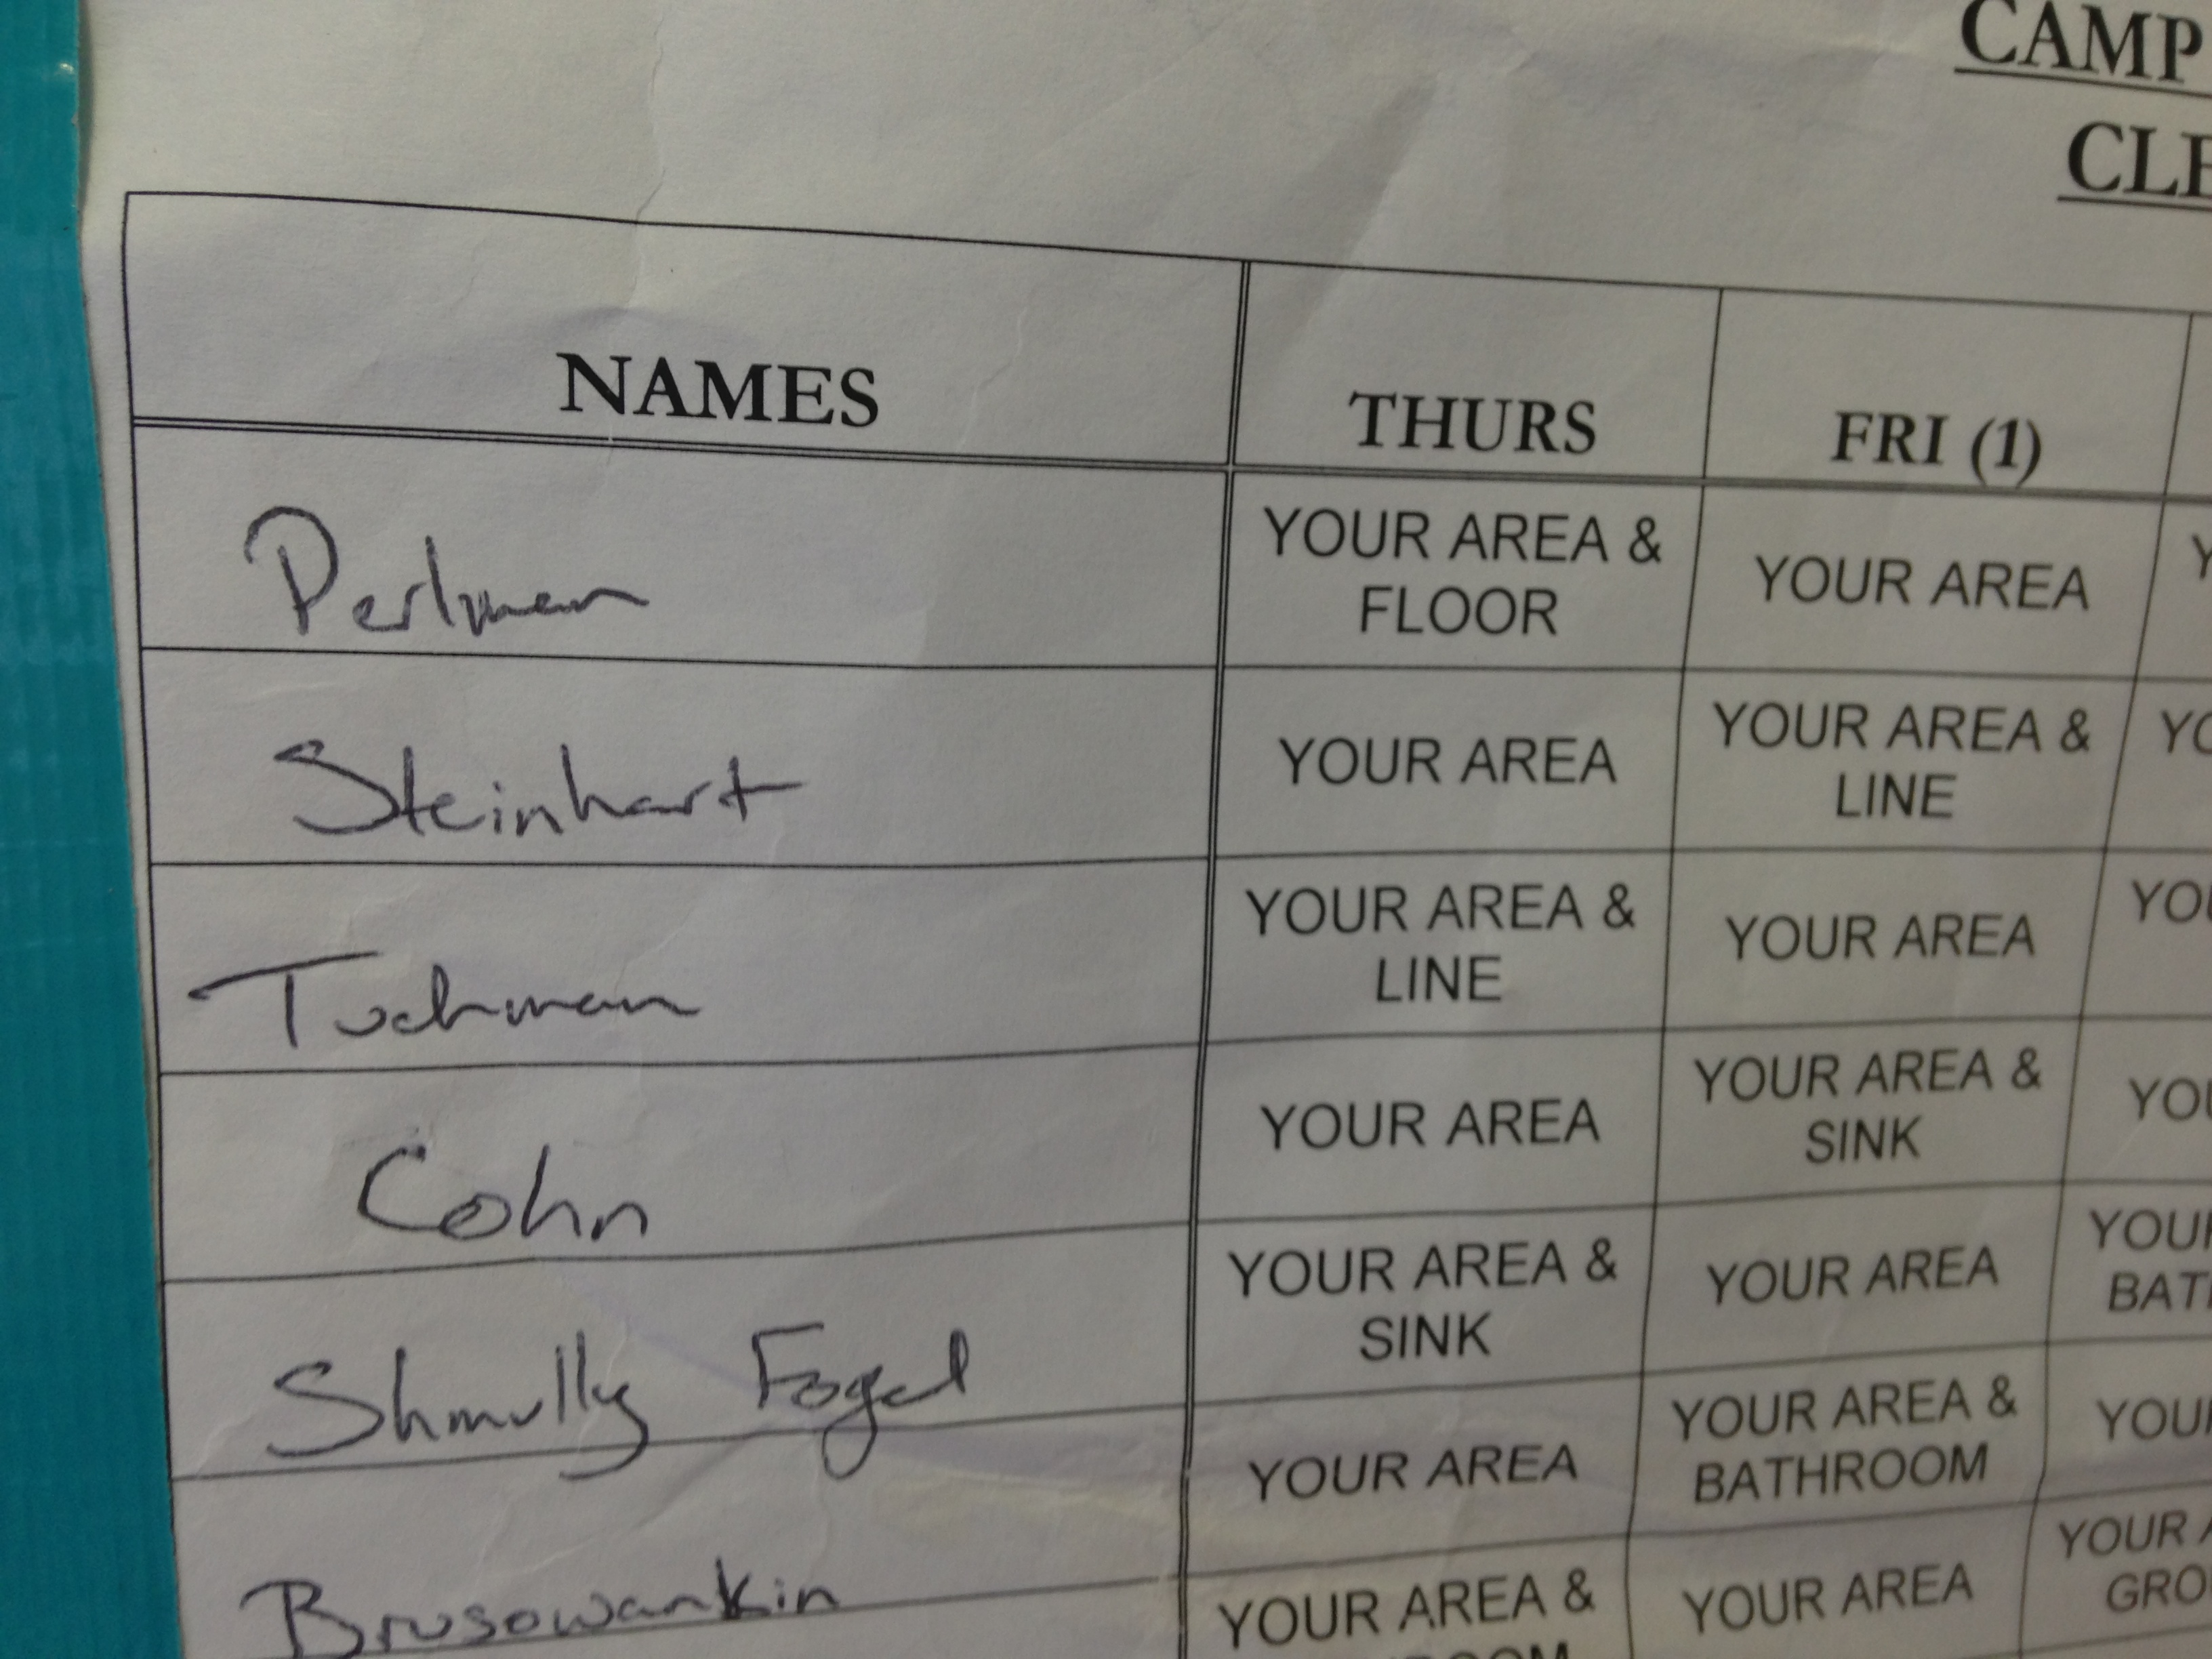 CAMP
CLE
NAMES THURS FRI (1)
Perlman YOUR AREA & FLOOR YOUR AREA Y
Steinhart YOUR AREA YOUR AREA & LINE YO
Tuchman YOUR AREA & LINE YOUR AREA YOU
Cohn YOUR AREA YOUR AREA & SINK YOU
Shmully Fogel YOUR AREA & SINK YOUR AREA YOUR BAT
Brusowankin YOUR AREA YOUR AREA & BATHROOM YOUR
YOUR AREA & ROOM YOUR AREA YOUR A GRO